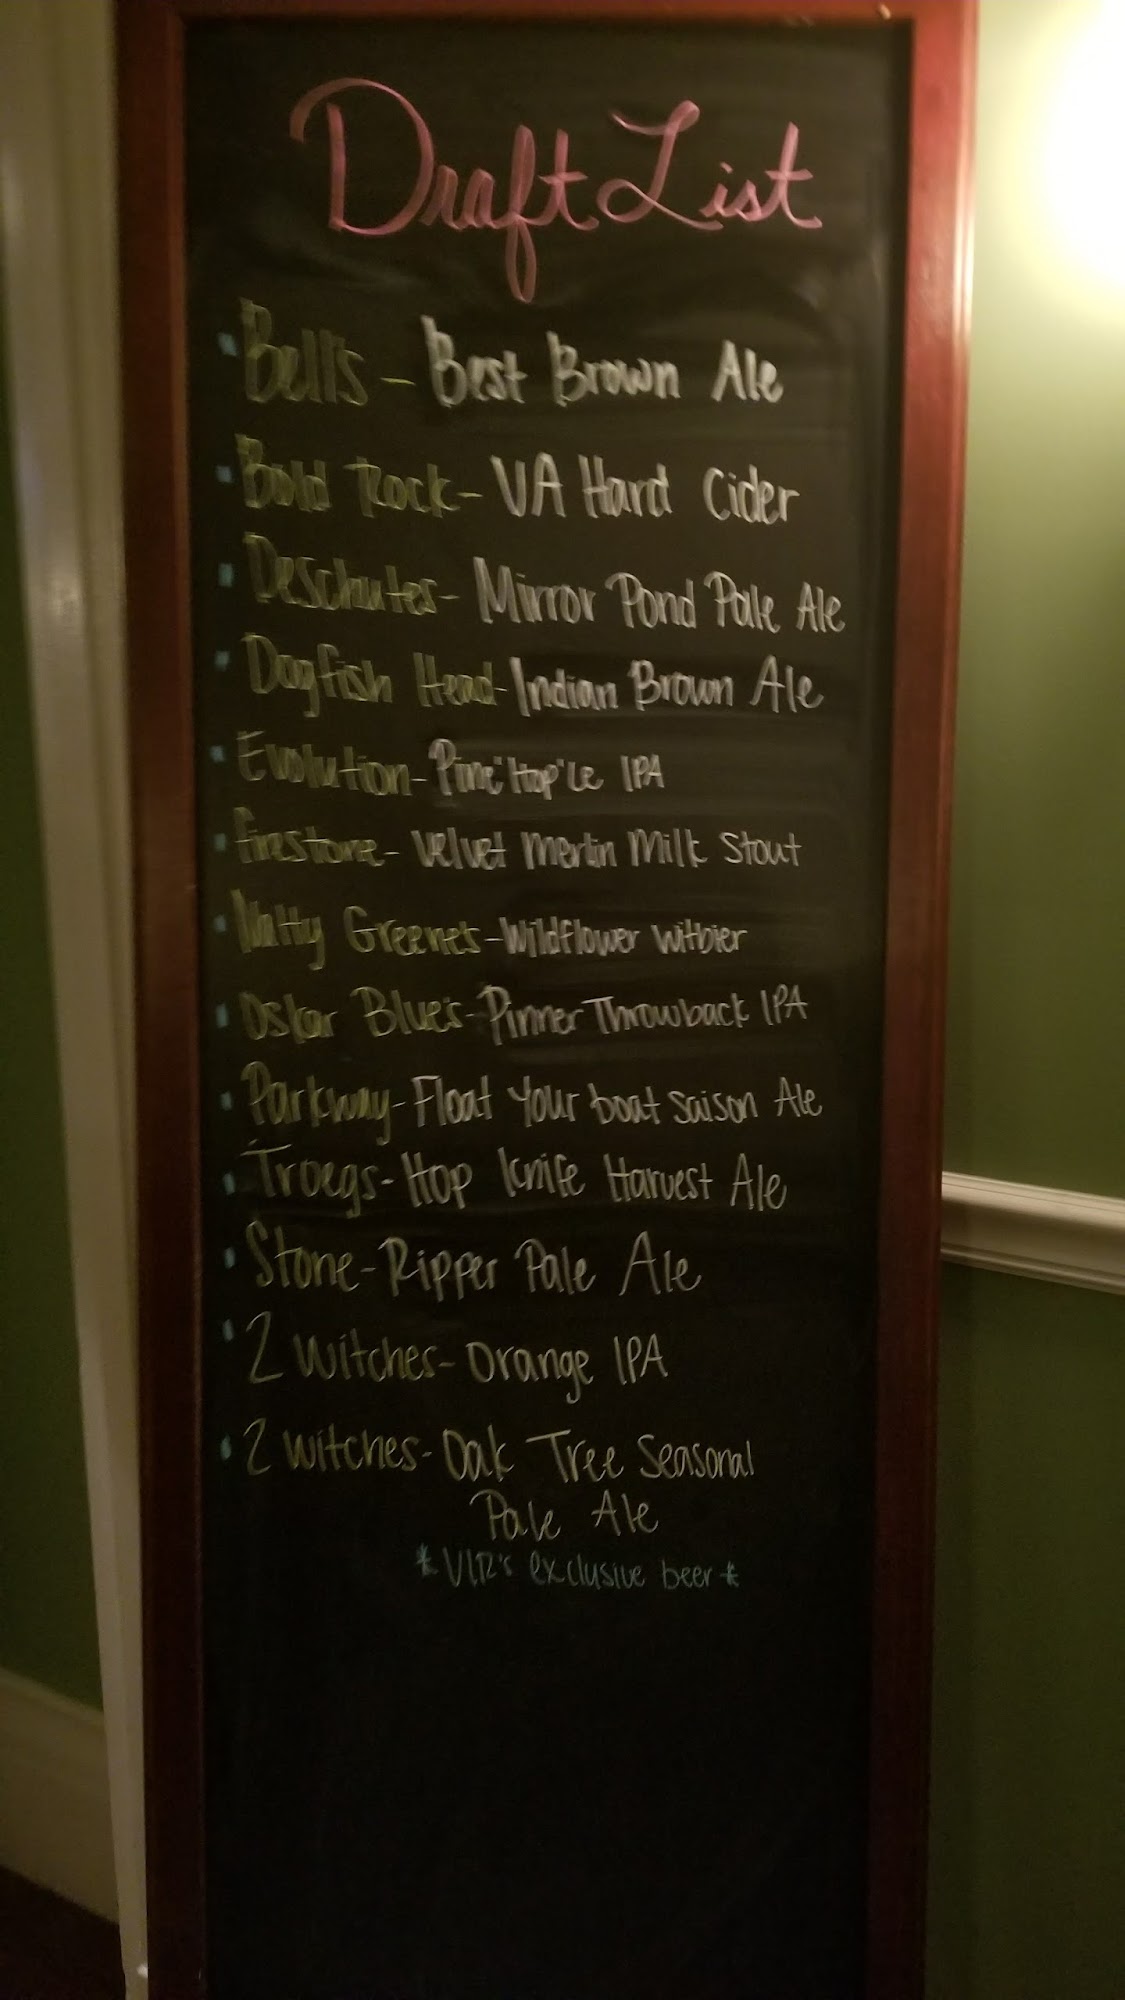 Draft List
Bell's - Best Brown Ale
Bold Rock - VA Hard Cider
Deschutes - Mirror Pond Pale Ale
Dogfish Head - Indian Brown Ale
Evolution - Pine'Hop'Le IPA
Firestone - Velvet Merlin Milk Stout
Natty Greene's - Wildflower Witbier
Oskar Blue's - Pinner Throwback IPA
Parkway - Float Your boat Saison Ale
Troegs - Hop Knife Harvest Ale
Stone - Ripper Pale Ale
2 Witches - Orange IPA
2 Witches - Oak Tree Seasonal
Pale Ale
*VIR's exclusive beer*